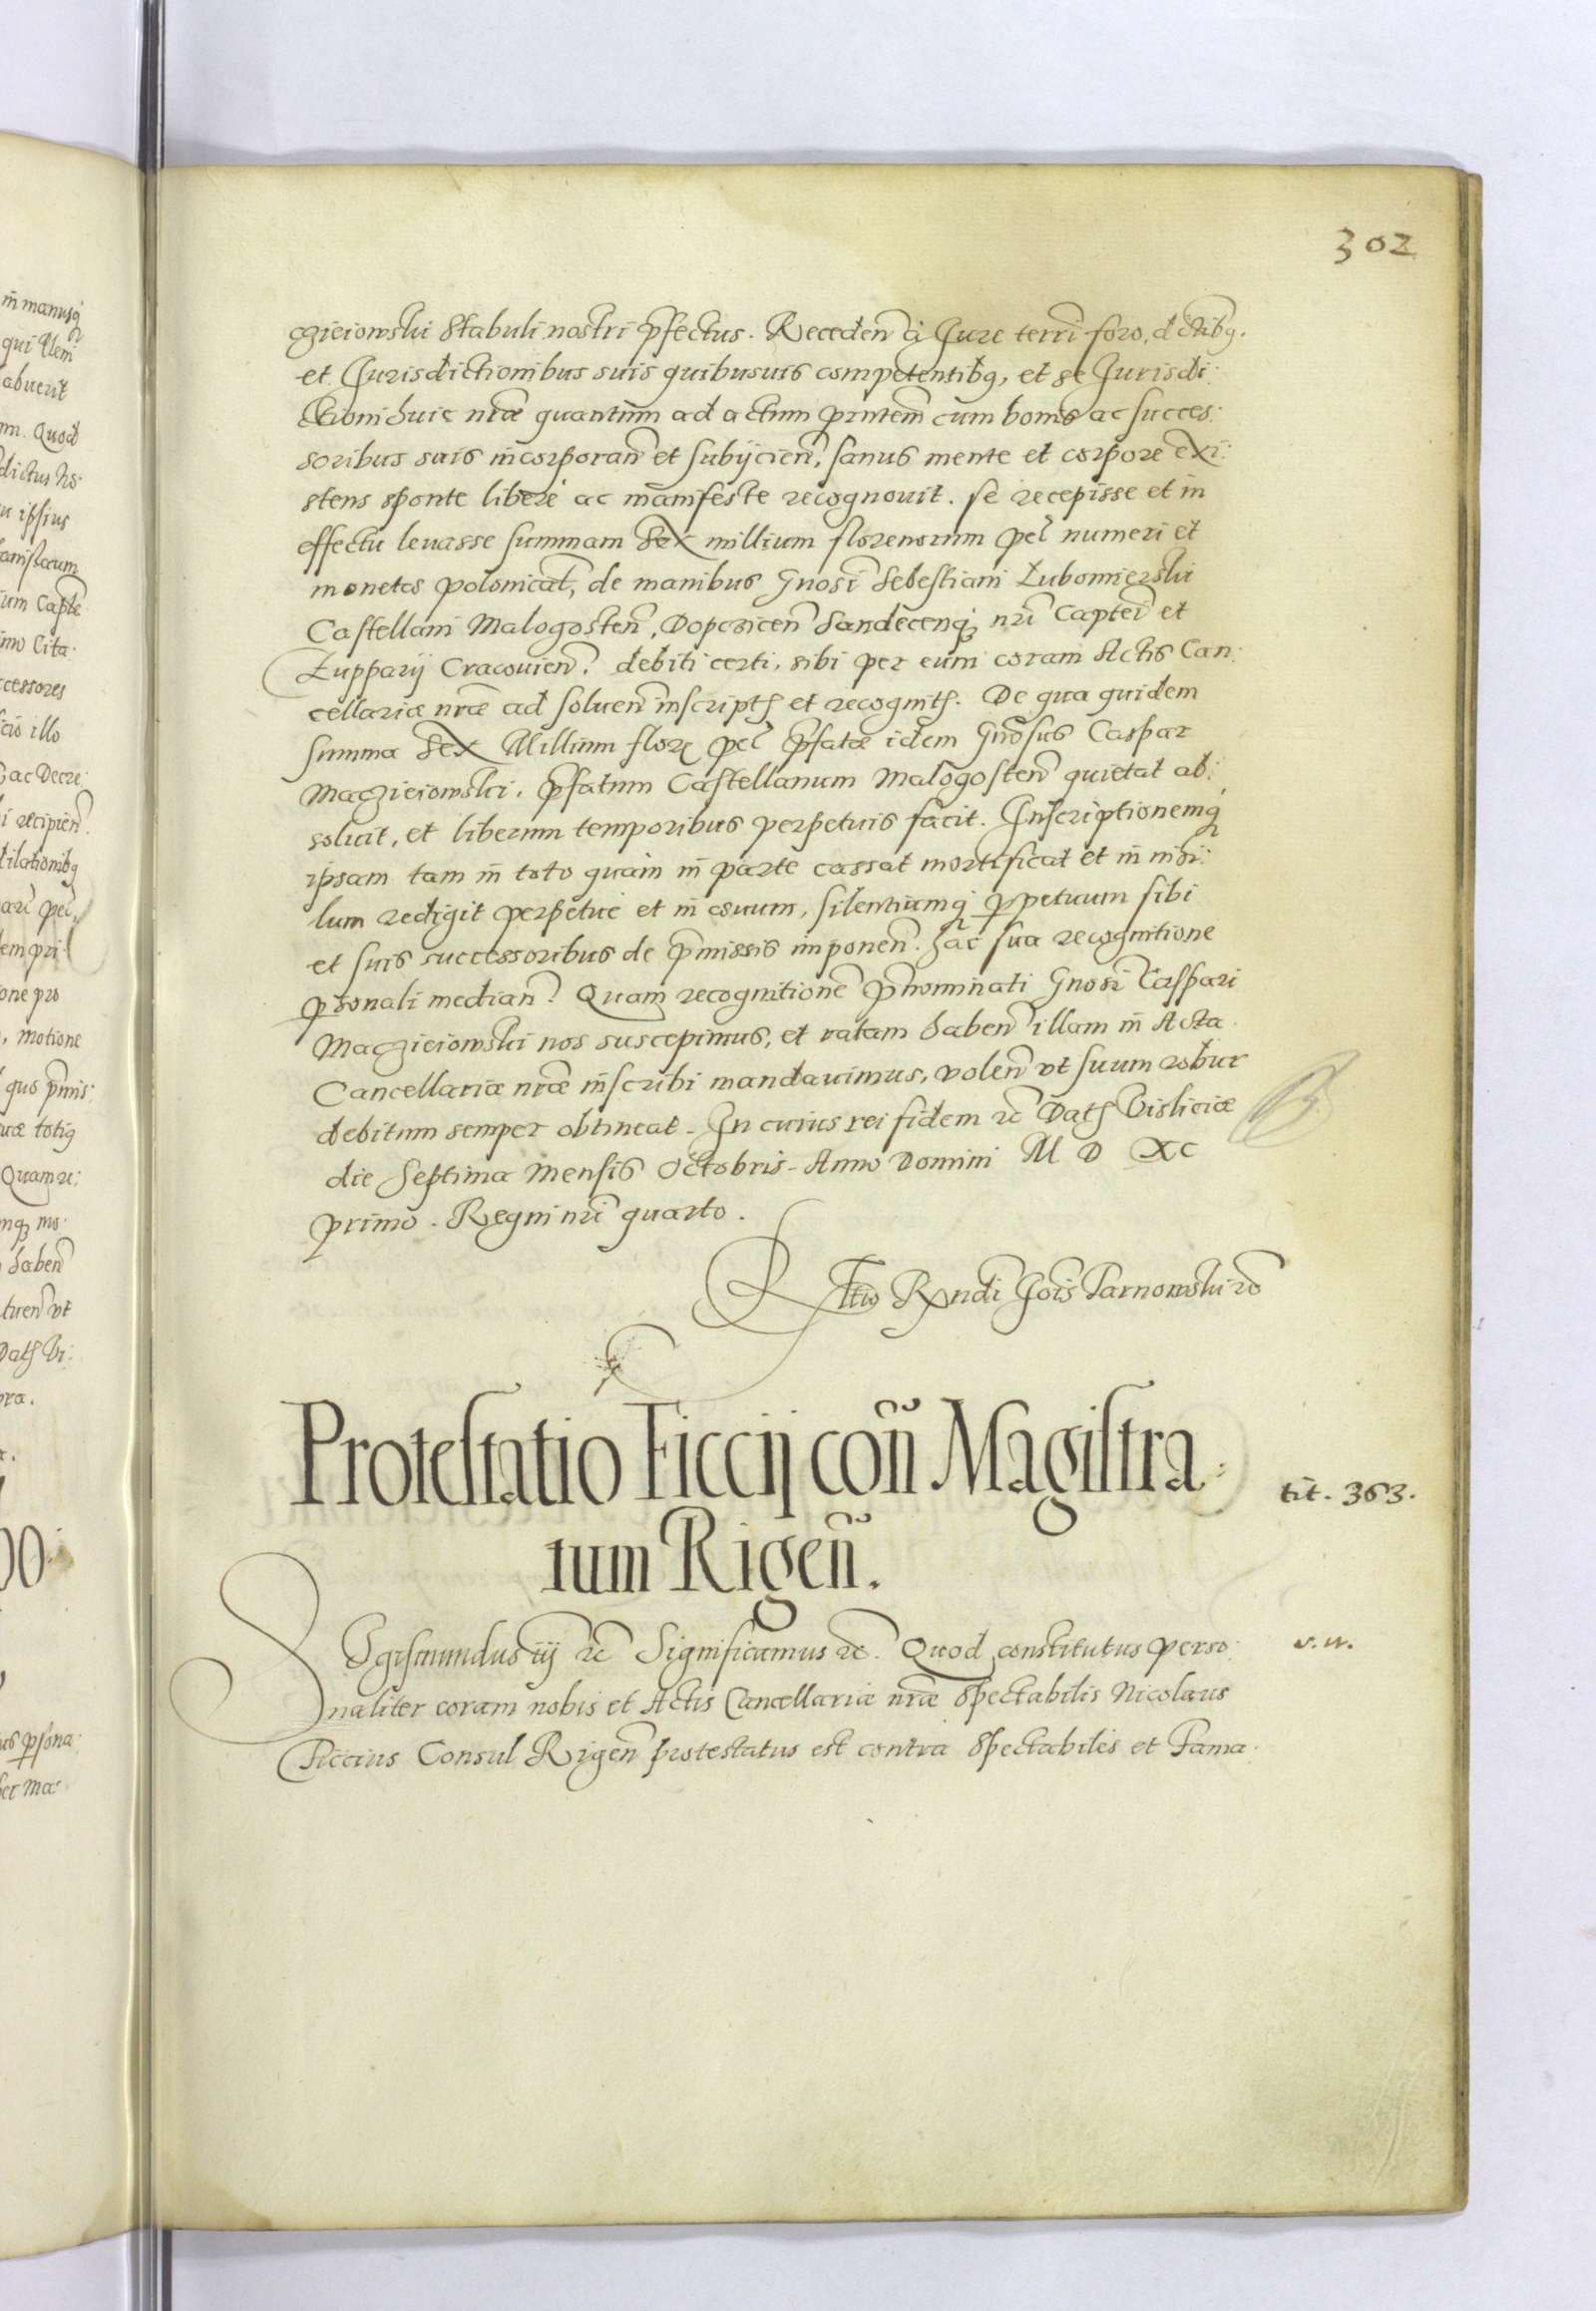 302
czieiowski Stabuli nostri p̃fectus. Receden̄ a Jure terri foro, dictibq.
et Jurisdictionibus suis quibusuis competentibq, et se Jurisdi:
ctioni huic nr̃æ quantum ad actum pr̃ntem cum bonis ac succes:
soribus suis incorporan̄ et subijcien̄, sanus mente et corpore exi:
stens sponte libere ac manifeste recognouit. se recepisse et in
effectu leuasse summam Sex millium florenorum pel̃ numeri et
monetæ polonical̃, de manibus Gnosi Sebestiani Lubomierski
Castellani Malogosten̄, Dopczicen̄ Sandecenq nr̃i Captei et
Zupparij Cracouien̄. debiti certi, sibi per eum coram Actis Can:
cellariæ nr̃æ ad soluen̄ inscriptȩ et recognitȩ. De qua quidem
summa Sex Millium flor. pel̃ p̃fatæ idem Gnosus Caspar
Maczieiowski. p̃fatum Castellanum Malogosten̄ quietat ab:
soluit, et liberum temporibus perpetuis facit. Inscriptionemq
ipsam tam in toto quam in parte cassat mortificat et in nihi:
lum redigit perpetue et in æuum, silentiumq ꝑpetuum sibi
et suis successoribus de p̃missis imponen̄. hac sua recognitione
ꝑsonali median̄. Quam recognitionē p̃nominati Gnosi Caspari
Maczieiowski nos suscepimus, et ratam haben̄ illam in Acta
Cancellariæ nr̃æ inscribi mandauimus, volen̄ vt suum robur
debitum semper obtineat. In cuius rei fidem &c Datȩ Visliciæ
die Septima Mensis Octobris. Anno Domini M D XC
primo. Regni nr̃i quarto.
Rltio Rx̃ndi Jois Tarnowski &c
Protestatio Ficcij con̄ Magistra:
tit. 363.
tum Rigen̄.
Sigismundus iij &c Significamus &c. Quod constitutus perso:
s. n.
naliter coram nobis et Actis Cancellariæ nr̃æ Spectabilis Nicolaus
Ficcius Consul Rigen̄ protestatus est contra Spectabiles et Fama: